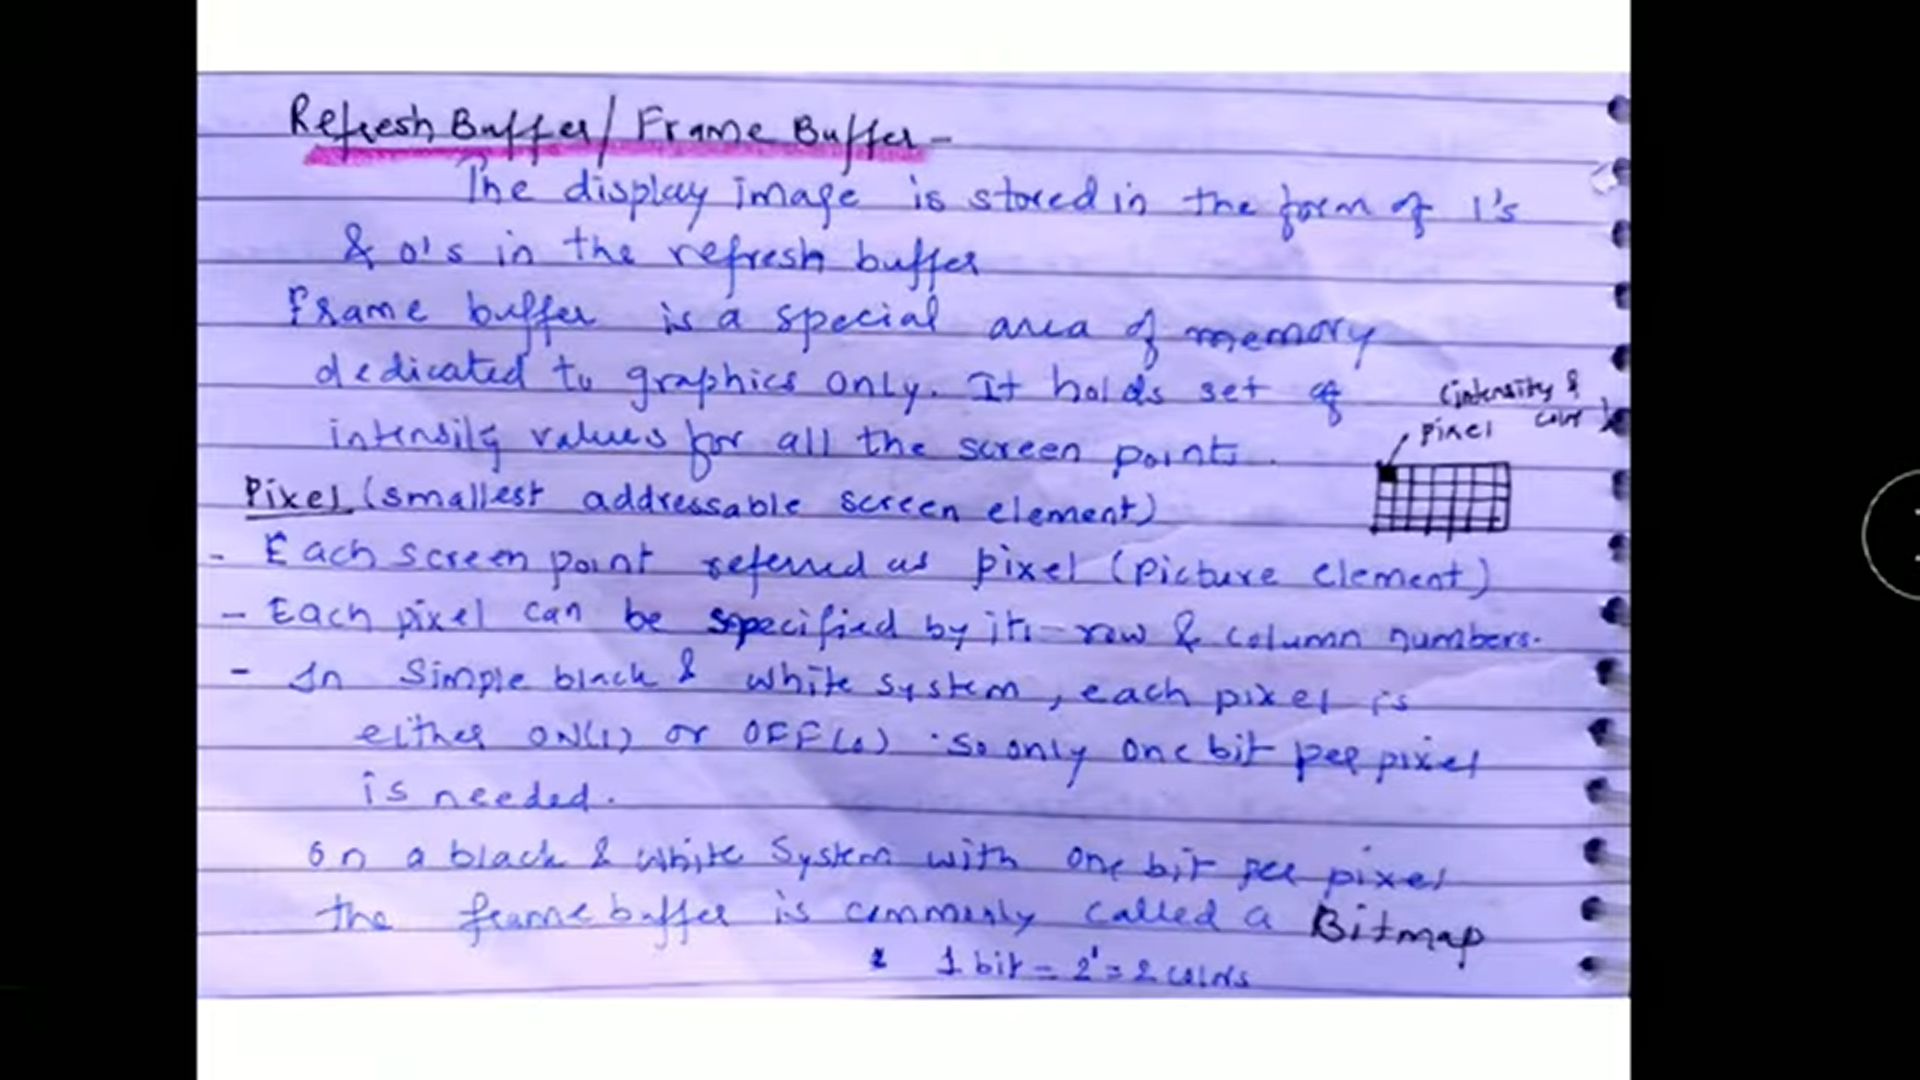 Refresh Buffer/ Frame Buffer -
The display image is stored in the form of 1's
& 0's in the refresh buffer
Frame buffer is a special area of memory
dedicated to graphics only. It holds set of
intensity values for all the screen points.
(intensity &
pixel
Pixel (smallest addressable screen element)
- Each screen point referred as pixel (Picture Element)
- Each pixel can be specified by its row & column numbers.
- In Simple black & white system, each pixel is
either ON(1) or OFF(0). So only one bit per pixel
is needed.
On a black & white System with one bit per pixel
the frame buffer is commonly called a Bitmap
1 bit = 2¹ = 2 colors